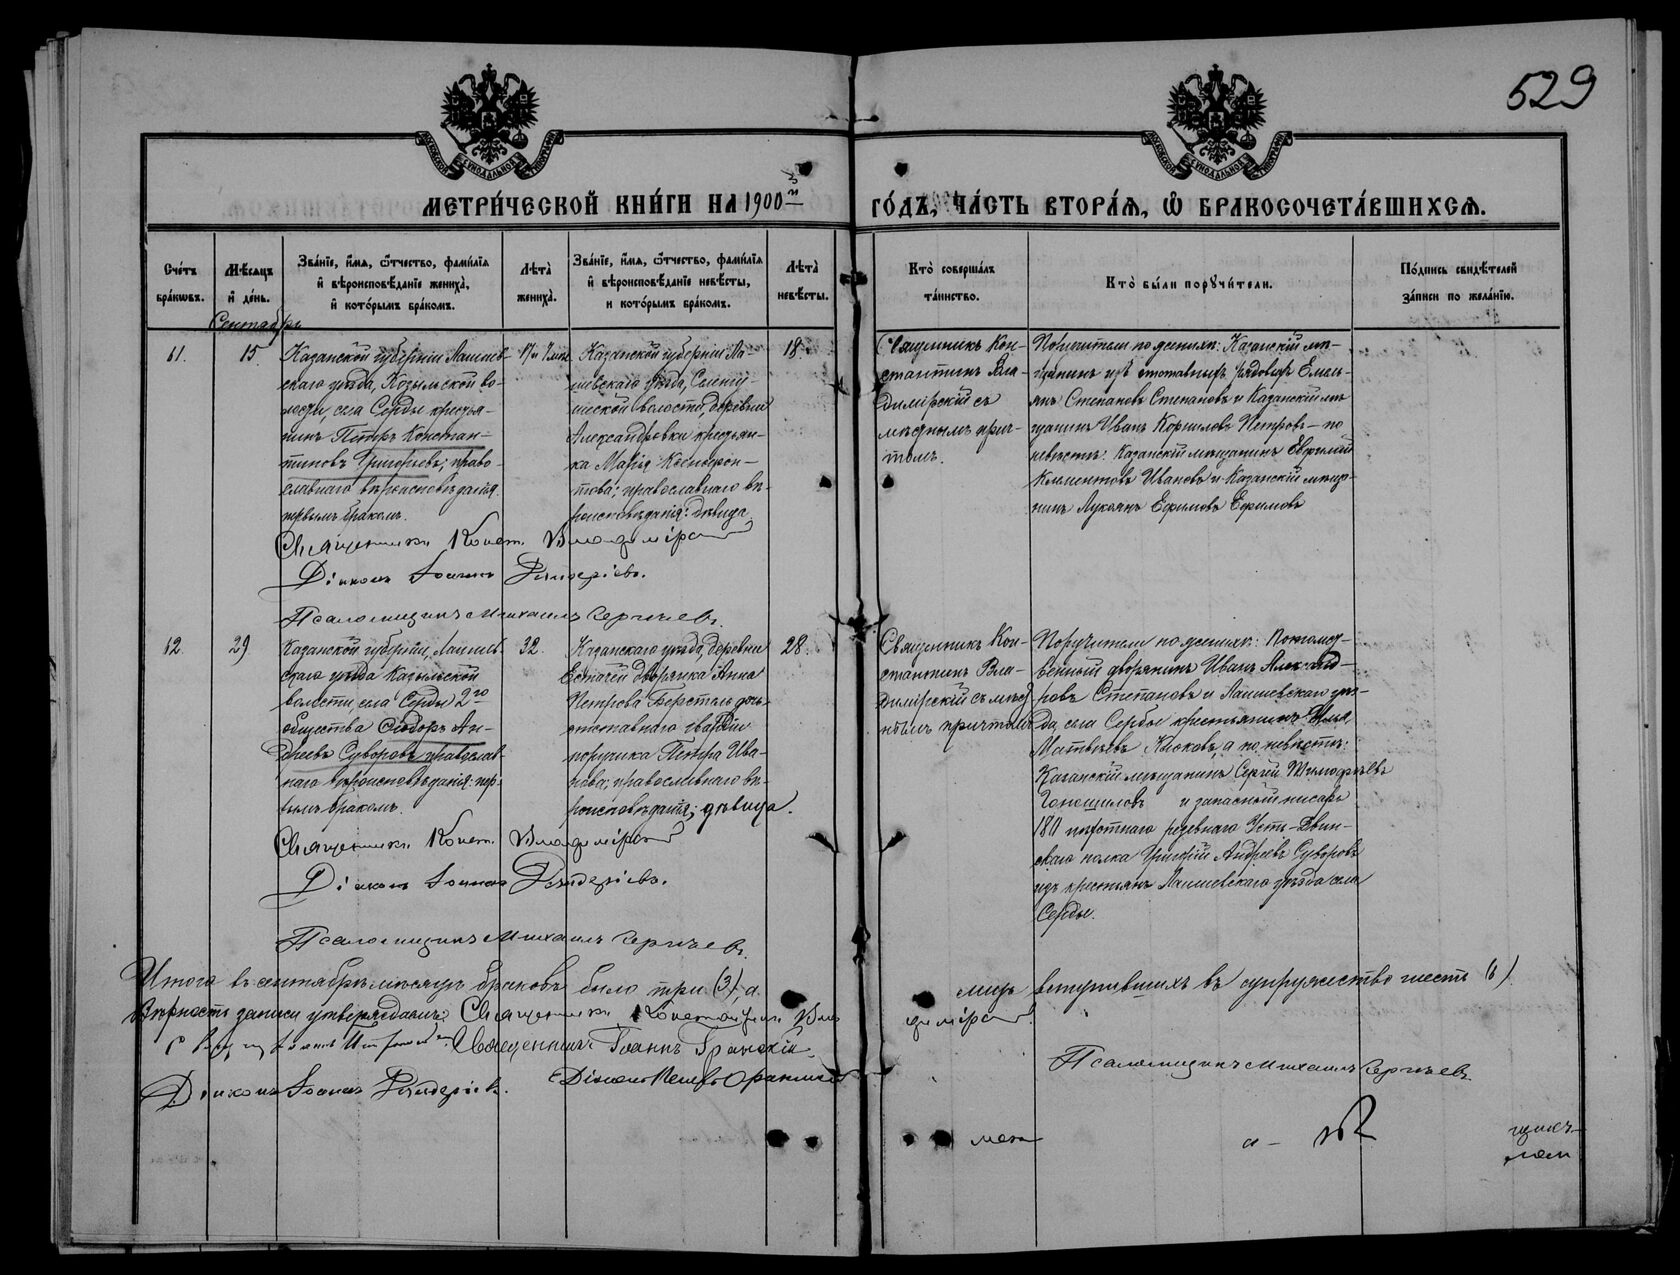 529
МЕТРИ́ЧЕСКОЙ КНИ́ГИ НА 1900 й
ГО́ДЪ, ЧА́СТЬ ВТОРА́Я, Ѡ БРАКОСОЧЕТА́ВШИХСЯ.
Сче́тъ бра́ковъ.
Мѣ́сяцъ и҆ де́нь.
Зва́нїе, и҆́мя, ѻ҆́тчество, фами́лїя и҆ вѣроисповѣ́данїе жениха̀, и҆ кото́рымъ бра́комъ.
Лѣта̀ жениха̀.
Зва́нїе, и҆́мя, ѻ҆́тчество, фами́лїя и҆ вѣроисповѣ́данїе невѣ́сты, и кото́рымъ бра́комъ.
Лѣта̀ невѣ́сты.
Кто̀ соверша́лъ та́инство.
Кто̀ бы́ли поручи́тели.
По́дпись свидѣ́телей за́писи по жела́нїю.
Сентябрь
61.
15
Казанской губерніи Лаишев-
скаго уѣзда, Козыльской во-
лости, села Серды крестья-
нинъ Петръ Констан-
тиновъ Григорьевъ; право-
славнаго вѣроисповѣданія
первымъ бракомъ.
Казанской губерніи Ла-
ишевскаго уѣзда,
волости, деревни
Александровки крестьян-
ка Марія Ксенофон-
това; православнаго вѣ-
роисповѣданія: дѣвица
18.
Священникъ Кон-
стантинъ Вла-
димірскій съ
мѣстнымъ прич-
томъ.
Поручители по женихѣ: Казанскій мѣ-
щанинъ изъ отставныхъ рядовыхъ Емель-
янъ Степановъ Степановъ и Казанскій мѣ-
щанинъ Иванъ Корниловъ Петровъ — по
невѣстѣ: Казанскій мѣщанинъ Евфимій
Климентовъ Ивановъ и Казанскій мѣща-
нинъ Лукіянъ Ефимовъ Ефимовъ
Священникъ Конст. Владимірскій
Діаконъ Іоаннъ
Псаломщикъ Михаилъ Сергѣевъ.
62.
29
Казанской губерніи, Лаишев-
скаго уѣзда Козыльской
волости, села Серды 2го
общества Сидоръ Ан-
дреевъ Суворовъ православ-
наго вѣроисповѣданія: пер-
вымъ бракомъ.
32.
Казанскаго уѣзда, деревни
дворянка Анна
Петрова дочь
отставнаго гвардіи
поручика Петра Ива-
нова; православнаго вѣ-
роисповѣданія; дѣвица.
28.
Священникъ Кон-
стантинъ Вла-
димірскій съ мѣст-
нымъ причтомъ
Поручители по женихѣ: Потомст-
венный дворянинъ Иванъ Александ-
ровъ Степановъ и Лаишевскаго уѣз-
да, села Серды крестьянинъ Илья
Матвѣевъ а по невѣстѣ:
Казанскій мѣщанинъ Сергѣй Тимофѣевъ
и запасный писарь
180 пѣхотнаго резервнаго Усть-Двин-
скаго полка Григорій Андреевъ Суворовъ
изъ крестьянъ Лаишевскаго уѣзда села
Серды.
Священникъ Конст. Владимірскій
Діаконъ Іоаннъ
Псаломщикъ Михаилъ Сергѣевъ.
Итого въ сентябрѣ мѣсяцѣ браковъ было три (3), а
лицъ вступившихъ въ супружество шесть (6)
Вѣрность записи утверждаемъ: Священникъ Константинъ Вла-
димірскій.
Священникъ Іоаннъ
Діаконъ Іоаннъ
Діаконъ
Псаломщикъ Михаилъ Сергѣевъ